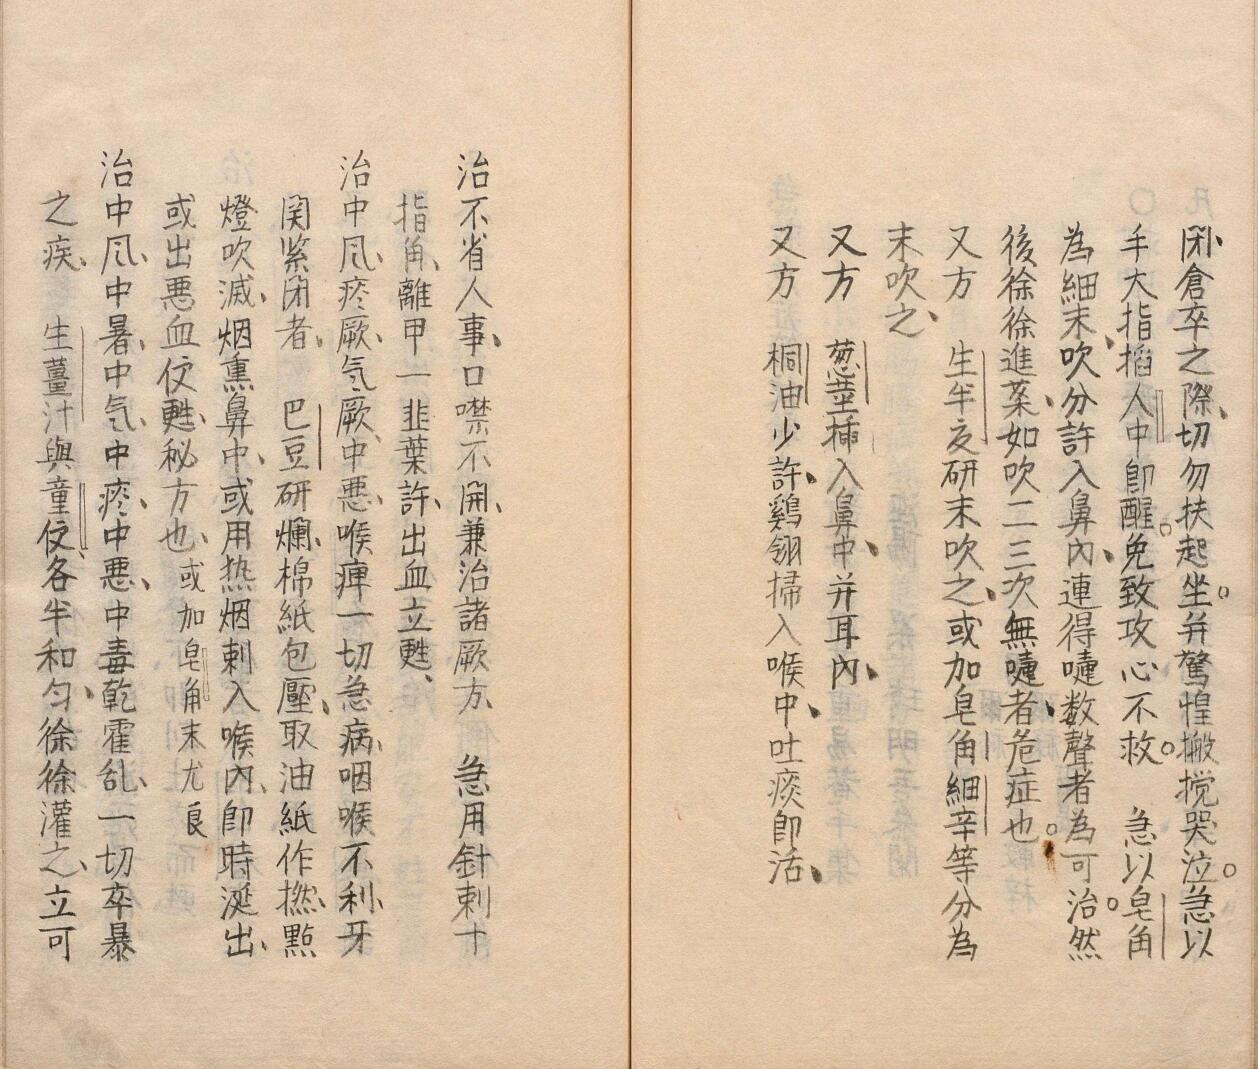 閉倉卒之際切勿扶起坐并驚惶搬撹哭泣急以
手大指搯人中卽醒免致攻心不救 急以皂角
為細末吹分許入鼻內連得嚏数聲者為可治然
後徐徐進藥如吹二三次無嚏者危症也
又方 生半夏研末吹之或加皂角細辛等分為
末吹之
又方 葱莖揷入鼻中并耳內
又方 桐油少許鷄翎掃入喉中吐痰卽活
治不省人事口噤不開兼治諸厥方 急用針刺十
指角離甲一韭葉許出血立甦
治中凨痰厥气厥中悪喉痺一切急病咽喉不利牙
関紧閉者 巴豆研爛棉紙包壓取油紙作撚點
燈吹滅烟熏鼻中或用热烟刺入喉內卽時涎出
或出悪血便甦秘方也或加皂角末尤良
治中凨中暑中气中痰中悪中毒乾霍乱一切卒暴
之疾 生薑汁與童便各半和匀徐徐灌之立可